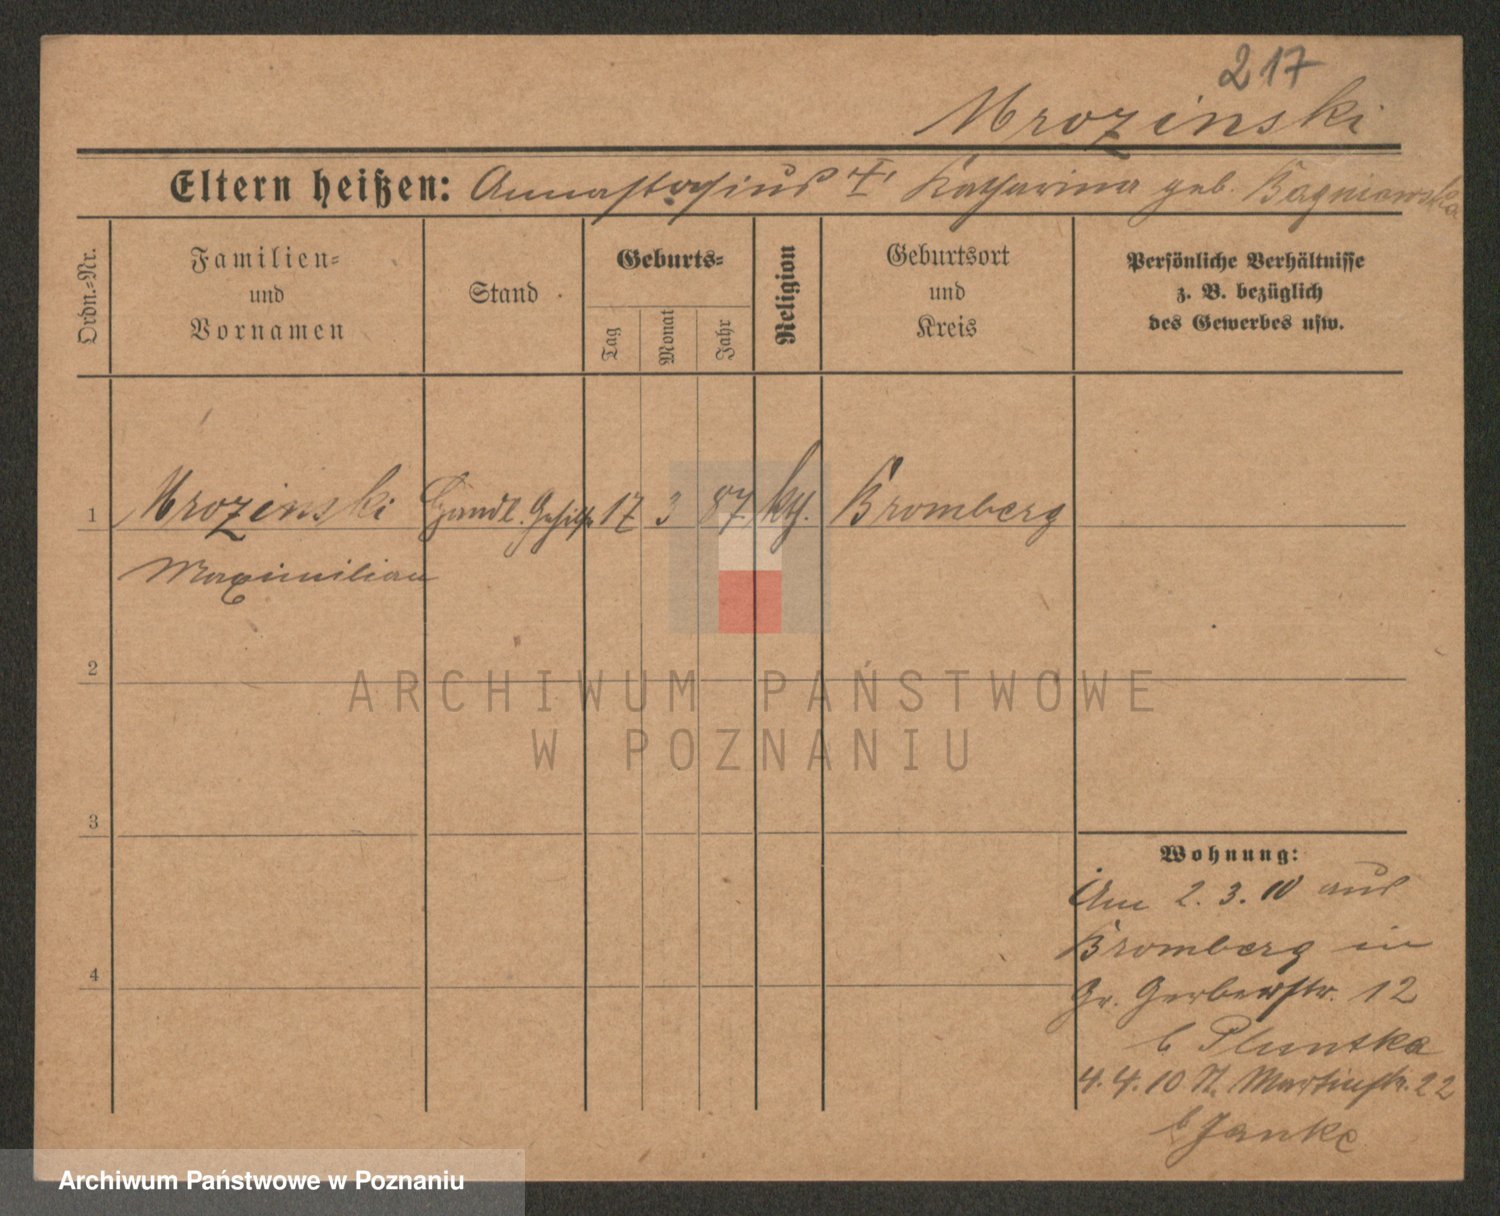 217
Mrozinski
Eltern heißen: Annastasius Katharina geb. Bagniowska
Ordn.-Nr.
Familien-
und
Vornamen
Stand
Geburts-
Tag
Monat
Jahr
Religion
Geburtsort
und
Kreis
Persönliche Verhältnisse
z. B. bezüglich
des Gewerbes usw.
1 Mrozinski Handl. Gehilfe 17 3 87 kth. Bromberg
Maximilian
2
3
4
Wohnung:
Am 2. 3. 10 aus
Bromberg in
Gr. Gerberstr. 12
b Pluntka
4. 4. 10 St. Martinstr. 22
b Janke
ARCHIWUM PAŃSTWOWE
W POZNANIU
Archiwum Państwowe w Poznaniu